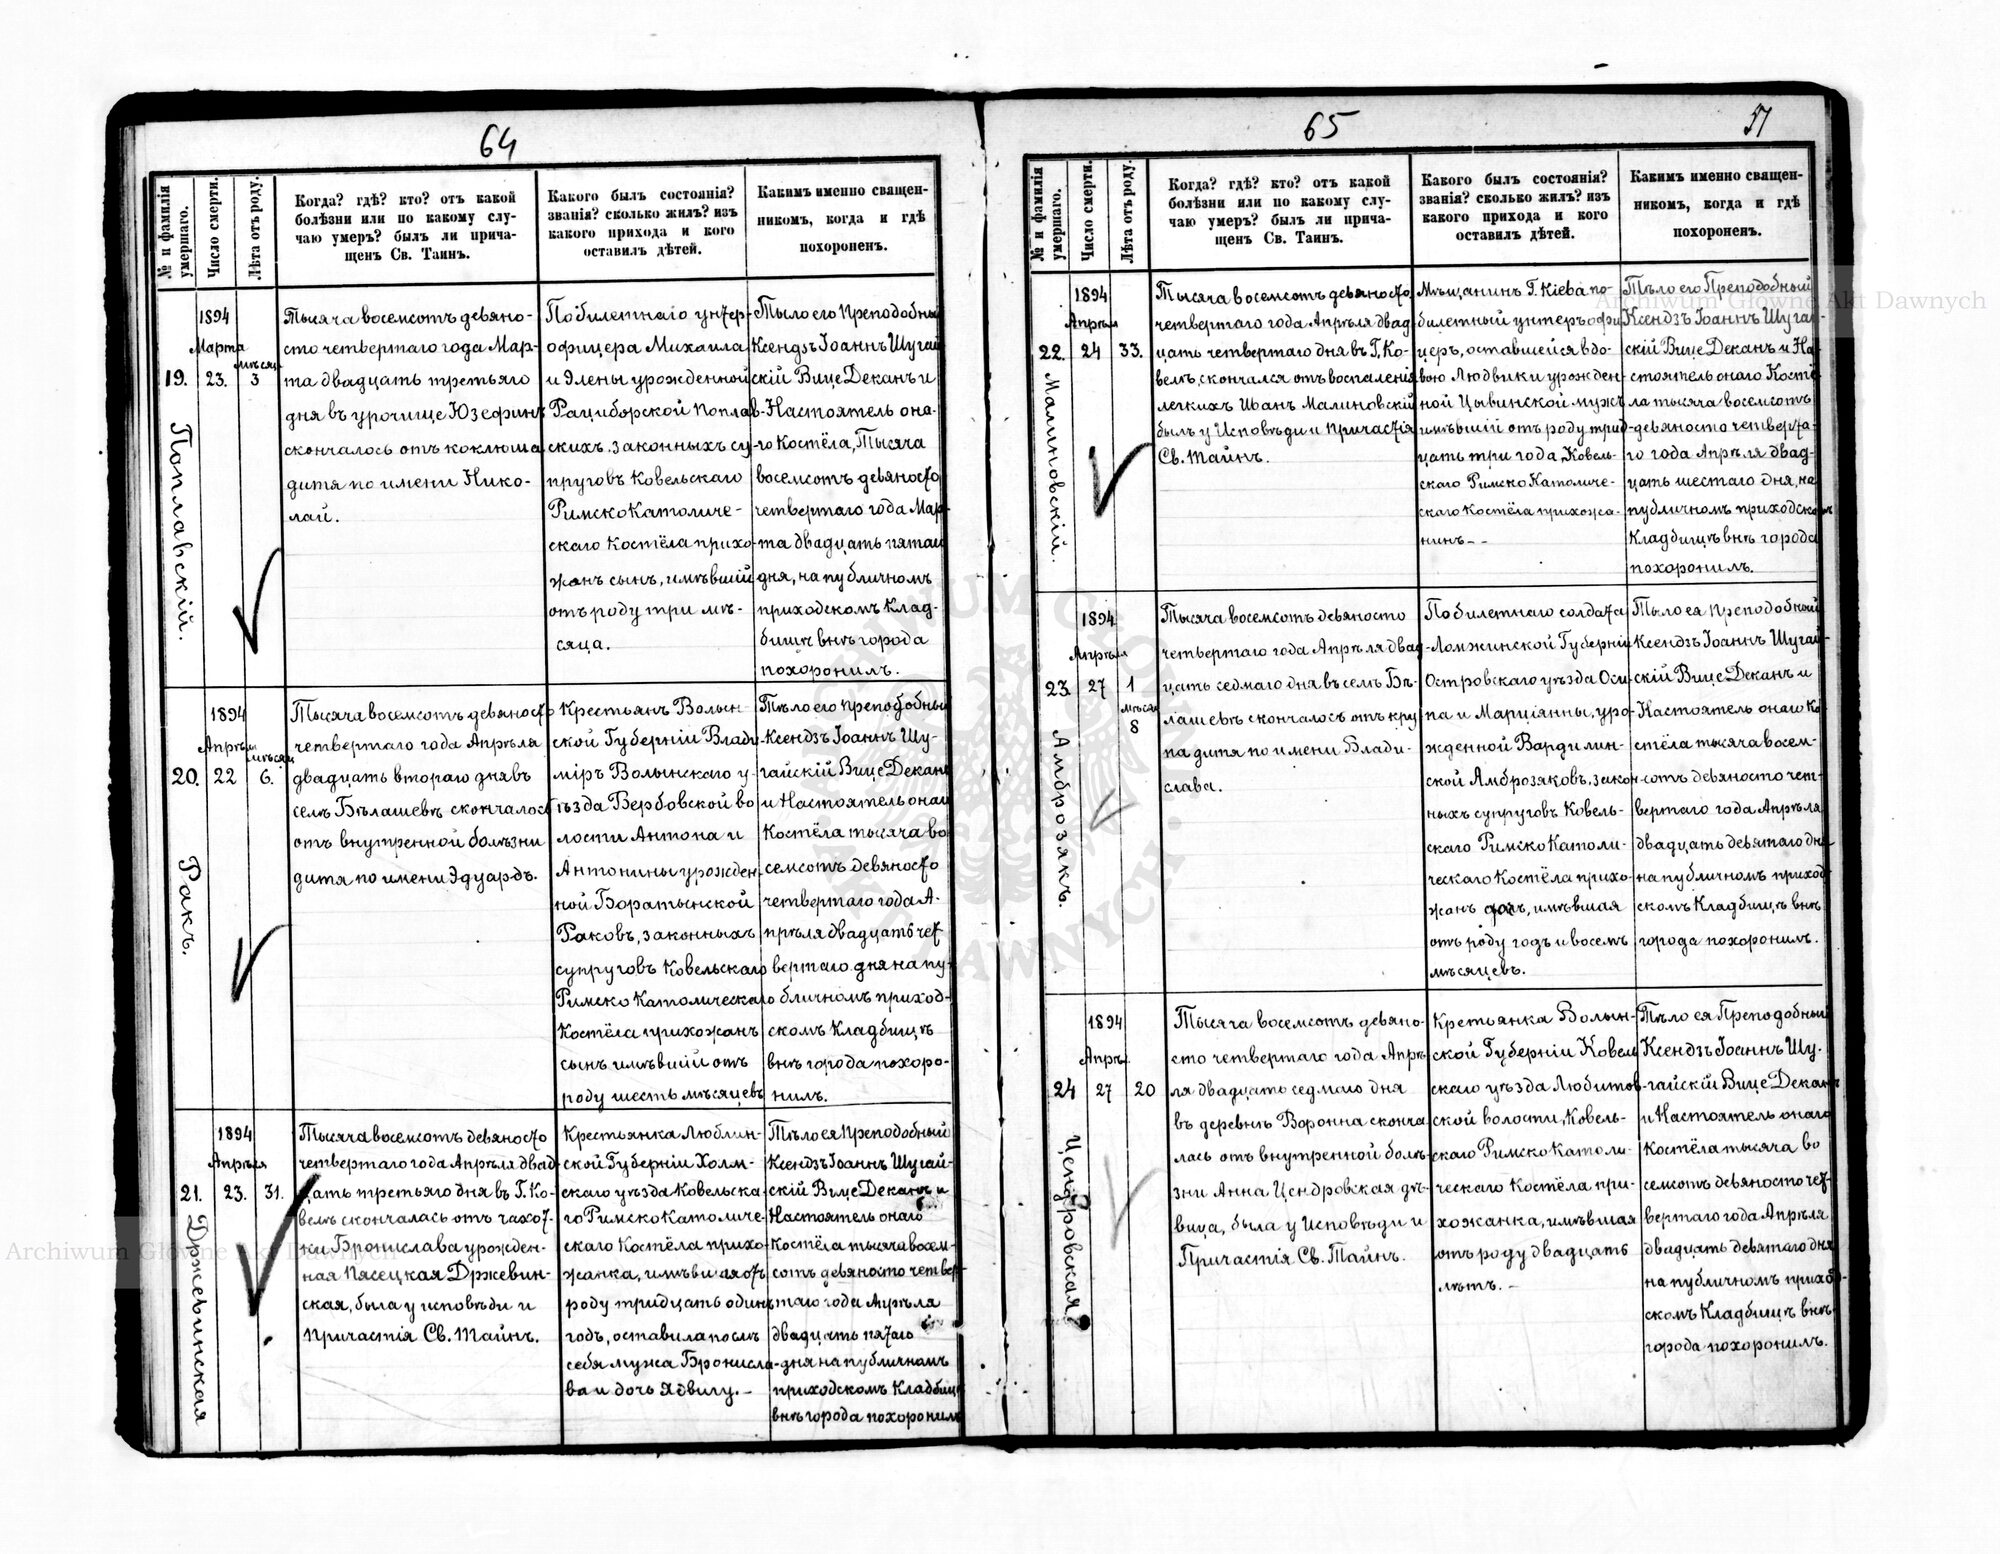 64
№ и фамилія умершаго.
Число смерти.
Лѣта отъ роду.
Когда? гдѣ? кто? отъ какой
болѣзни или по какому слу-
чаю умеръ? былъ ли прича-
щенъ Св. Таинъ.
Какого былъ состоянія?
званія? сколько жилъ? изъ
какого прихода и кого
оставилъ дѣтей.
Какимъ именно священ-
никомъ, когда и гдѣ
похороненъ.
19.
Поплавскій.
1894
Марта
23.
мѣсяц
3
Тысяча восемсотъ девяно-
сто четвертаго года Мар-
та двадцать третьяго
дня въ урочище Юзефинъ
скончалось отъ коклюша
дитя по имени Нико-
лай.
Побилетнаго унтер-
офицера Михаила
и Элены урожденной
Рациборской Поплав-
скихъ законныхъ су-
пруговъ Ковельскаго
РимскоКатоличе-
скаго Костёла прихо-
жанъ сынъ, имѣвшій
отъ роду три мѣ-
сяца.
Тыло его Преподобный
Ксендзъ Іоаннъ Шугай
скій ВицеДеканъ и
Настоятель она-
го Костёла, Тысяча
восемсотъ девяносто
четвертаго года Мар-
та двадцать пятаго
дня, на публичномъ
приходскомъ Клад-
бищѣ внѣ города
похоронилъ.
20.
Ракъ.
1894
Апрѣля
22
мѣсяц
6.
Тысяча восемсотъ девяносто
четвертаго года Апрѣля
двадцать втораго дня въ
селѣ Бѣлашевѣ скончалось
отъ внутренной болѣзни
дитя по имени Эдуардъ.
Крестьянъ Волын-
ской Губерніи Влади
міръ Волынскаго у-
ѣзда Вербовской во
лости Антона и
Антонины урожден-
ной Боратынской
Раковъ, законныхъ
супруговъ Ковельскаго
Римско Католическаго
Костёла прихожанъ
сынъ имѣвшій отъ
роду шесть мѣсяцевъ
Тѣло его Преподобный
Ксендзъ Іоаннъ Шу-
гайскій ВицеДеканъ
и Настоятель онаго
Костёла тысяча во
семсотъ девяносто
четвертаго года А-
прѣля двадцать чет
вертаго дня на пу-
бличномъ приход-
скомъ Кладбищѣ
внѣ города похоро-
нилъ.
21.
Држевинская
1894
Апрѣля
23.
31.
Тысяча восемсотъ девяносто
четвертаго года Апрѣля двад
цать третьяго дня въ Г. Ко-
велѣ скончалась отъ чахот-
ки Бронислава урожден-
ная Пясецкая Држевин-
ская, была у исповѣди и
Причастія Св. Тайнъ.
Крестьянка Люблин-
ской Губерніи Холм-
скаго уѣзда Ковельска
го Римско Католиче-
скаго Костёла прихо-
жанка, имѣвшая отъ
роду тридцать одинъ
годъ, оставила послѣ
себя мужа Бронисла-
ва и дочь Ядвигу. –
Тѣло ея Преподобный
Ксендзъ Іоаннъ Шугай-
скій Вице Деканъ и
Настоятель онаго
Костёла тысяча восем-
сотъ девяносто четвер-
таго года Апрѣля
двадцать пятаго
дня на публичномъ
приходскомъ Кладбищ
внѣ города похоронилъ
65
51
№ и фамилія умершаго.
Число смерти.
Лѣта отъ роду.
Когда? гдѣ? кто? отъ какой
болѣзни или по какому слу-
чаю умеръ? былъ ли прича-
щенъ Св. Таинъ.
Какого былъ состоянія?
званія? сколько жилъ? изъ
какого прихода и кого
оставилъ дѣтей.
Какимъ именно священ-
никомъ, когда и гдѣ
похороненъ.
22.
Малиновскій.
1894
Апрѣля
24
33.
Тысяча восемсотъ девяносто
четвертаго года Апрѣля двад
цать четвертаго дня въ Г. Ко-
велѣ, скончался отъ воспаленія
легкихъ Иванъ Малиновскій
былъ у Исповѣди и Причастія
Св. Тайнъ.
Мѣщанинъ Г. Кіева по-
билетный унтеръ офи
церъ, оставшейся вдо-
вою Людвики урожден
ной Цывинской мужъ
имѣвшій отъ роду трид-
цать три года, Ковель-
скаго Римско Католиче-
скаго Костёла прихожа-
нинъ – –
Тѣло его Преподобный
Ксендзъ Іоаннъ Шугай-
скій Вице Деканъ и На-
стоятель онаго Костё
ла тысяча восемсотъ
девяносто четверта-
го года Апрѣля двад-
цать шестаго дня, на
публичномъ приходскомъ
Кладбищѣ внѣ города
похоронилъ.
23.
Амброзякъ.
1894
Апрѣля
27
1
мѣсяц
8
Тысяча восемсотъ девяносто
четвертаго года Апрѣля двад
цать седмаго дня въ селѣ Бѣ-
лашевѣ скончалось отъ кру
па дитя по имени Влади-
слава.
Побилетнаго солдата
Ломжинской Губерніи
Островскаго уѣзда Оси
па и Марціянны, уро-
жденной Вардилин-
ской Амброзяковъ, закон-
ныхъ супруговъ Ковель-
скаго Римско Католи-
ческаго Костёла прихо-
жанъ дочь, имѣвшая
отъ роду годъ и восемь
мѣсяцевъ.
Тѣло ея Преподобной
Ксендзъ Іоаннъ Шугай-
скій Вице Деканъ и
Настоятель онаго Ко-
стёла тысяча восем-
сотъ девяносто чет-
вертаго года Апрѣля
двадцать девятаго дня
на публичномъ приход
скомъ Кладбищѣ внѣ
города похоронилъ.
24
Цендровская
1894
Апрѣ.
27
20
Тысяча восемсотъ девяно-
сто четвертаго года Апрѣ
ля двадцать седмаго дня
въ деревнѣ Воронна сконча
лась отъ внутренной болѣ
зни Анна Цендровская дѣ-
вица, была у Исповѣди и
Причастія Св. Тайнъ.
Кретьянка Волын-
ской Губерніи Ковель
скаго уѣзда Любитов-
ской волости, Ковель-
скаго Римско Католи-
ческаго Костёла при-
хожанка, имѣвшая
отъ роду двадцать
лѣтъ. –
Тѣло ея Преподобный
Ксендзъ Іоаннъ Шу-
гайскій Вице Деканъ
и Настоятель онаго
Костёла тысяча во
семсотъ девяносто чет-
вертаго года Апрѣля
двадцать девятаго дня
на публичномъ приход-
скомъ Кладбищѣ внѣ
города похоронилъ.
Archiwum Główne Akt Dawnych
Archiwum Główne Akt Dawnych
ARCHIWUM GŁÓWNE AKT DAWNYCH